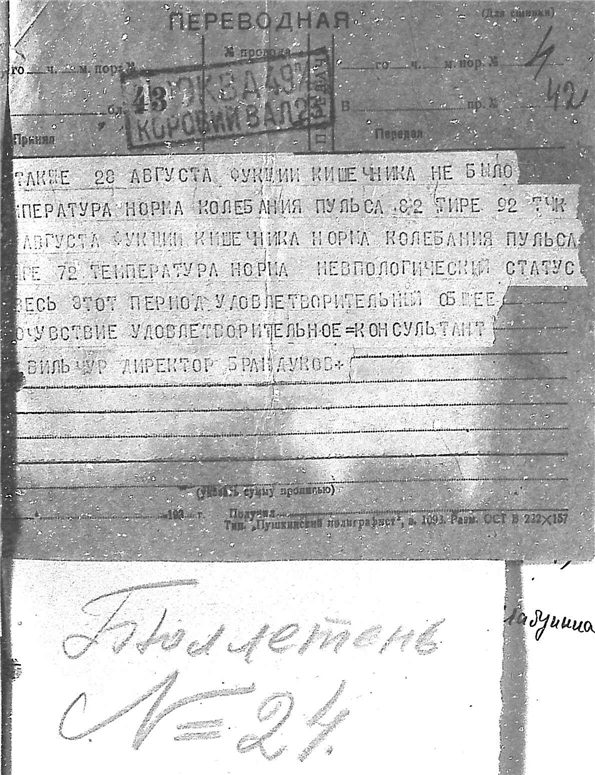 ПЕРЕВОДНАЯ
(Для сшивки)
№ провода
го ч. м. пор. №
го ч. м. пор. № 4
МОСКВА 49
43
КОРОВИЙ ВАЛ 23
бл.
В пр. № 42
Принял
Передал
ТАКЖЕ 28 АВГУСТА ФУКЦИИ КИШЕЧНИКА НЕ БЫЛО
МПЕРАТУРА НОРМА КОЛЕБАНИЯ ПУЛЬСА 82 ТИРЕ 92 ТЧК
АВГУСТА ФУКЦИИ КИШЕЧНИКА НОРМА КОЛЕБАНИЯ ПУЛЬСА
РЕ 72 ТЕМПЕРАТУРА НОРМА НЕВПОЛОГИЧЕСКИЙ СТАТУС
ВЕСЬ ЭТОТ ПЕРИОД УДОВЛЕТВОРИТЕЛЬНЫЙ ОБЩЕЕ
ОЧУВСТВИЕ УДОВЛЕТВОРИТЕЛЬНОЕ=КОНСУЛЬТАНТ
ВИЛЬЧУР ДИРЕКТОР БРАНДУКОВ+
(указать сумму прописью)
193 г. Получил
Тип. „Пушкинский полиграфист", з. 1093. Разм. ОСТ В 222×157
Бюллетень
№ 24.